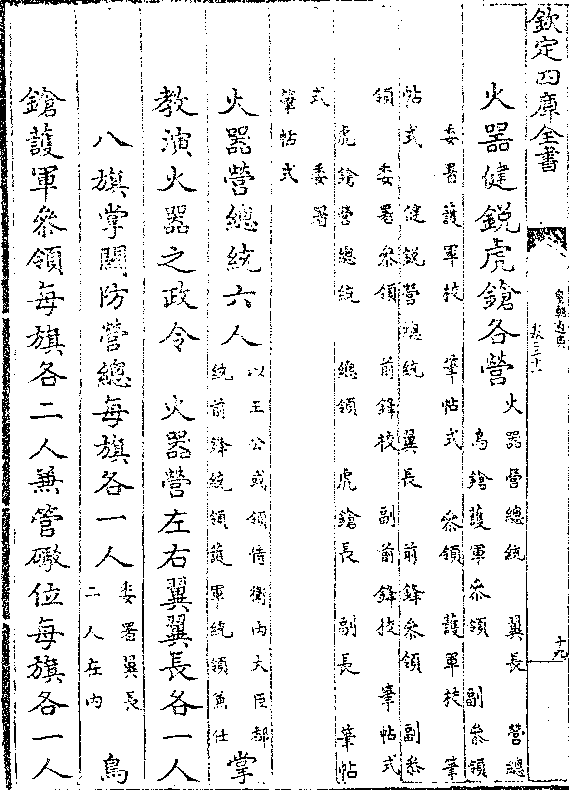 欽定四庫全書
皇朝通典
卷三十一
十九
火器健銳虎鎗各營
火器營總統 翼長 營總
鳥鎗護軍參領 副參領
委署護軍校 筆帖式 參領 護軍校 筆
帖式 健銳營總統 翼長 前鋒參領 副參
領 委署參領 前鋒校 副前鋒校 筆帖式
虎鎗營總統 總領 虎鎗長 副長 筆帖
式 委署
筆帖式
火器營總統六人
以王公或領侍衛內大臣都
統前鋒統領護軍統領兼任
掌
教演火器之政令 火器營左右翼翼長各一人
八旗掌關防營總每旗各一人
委署翼長
二人在內
鳥
鎗護軍參領每旗各二人兼管礟位每旗各一人